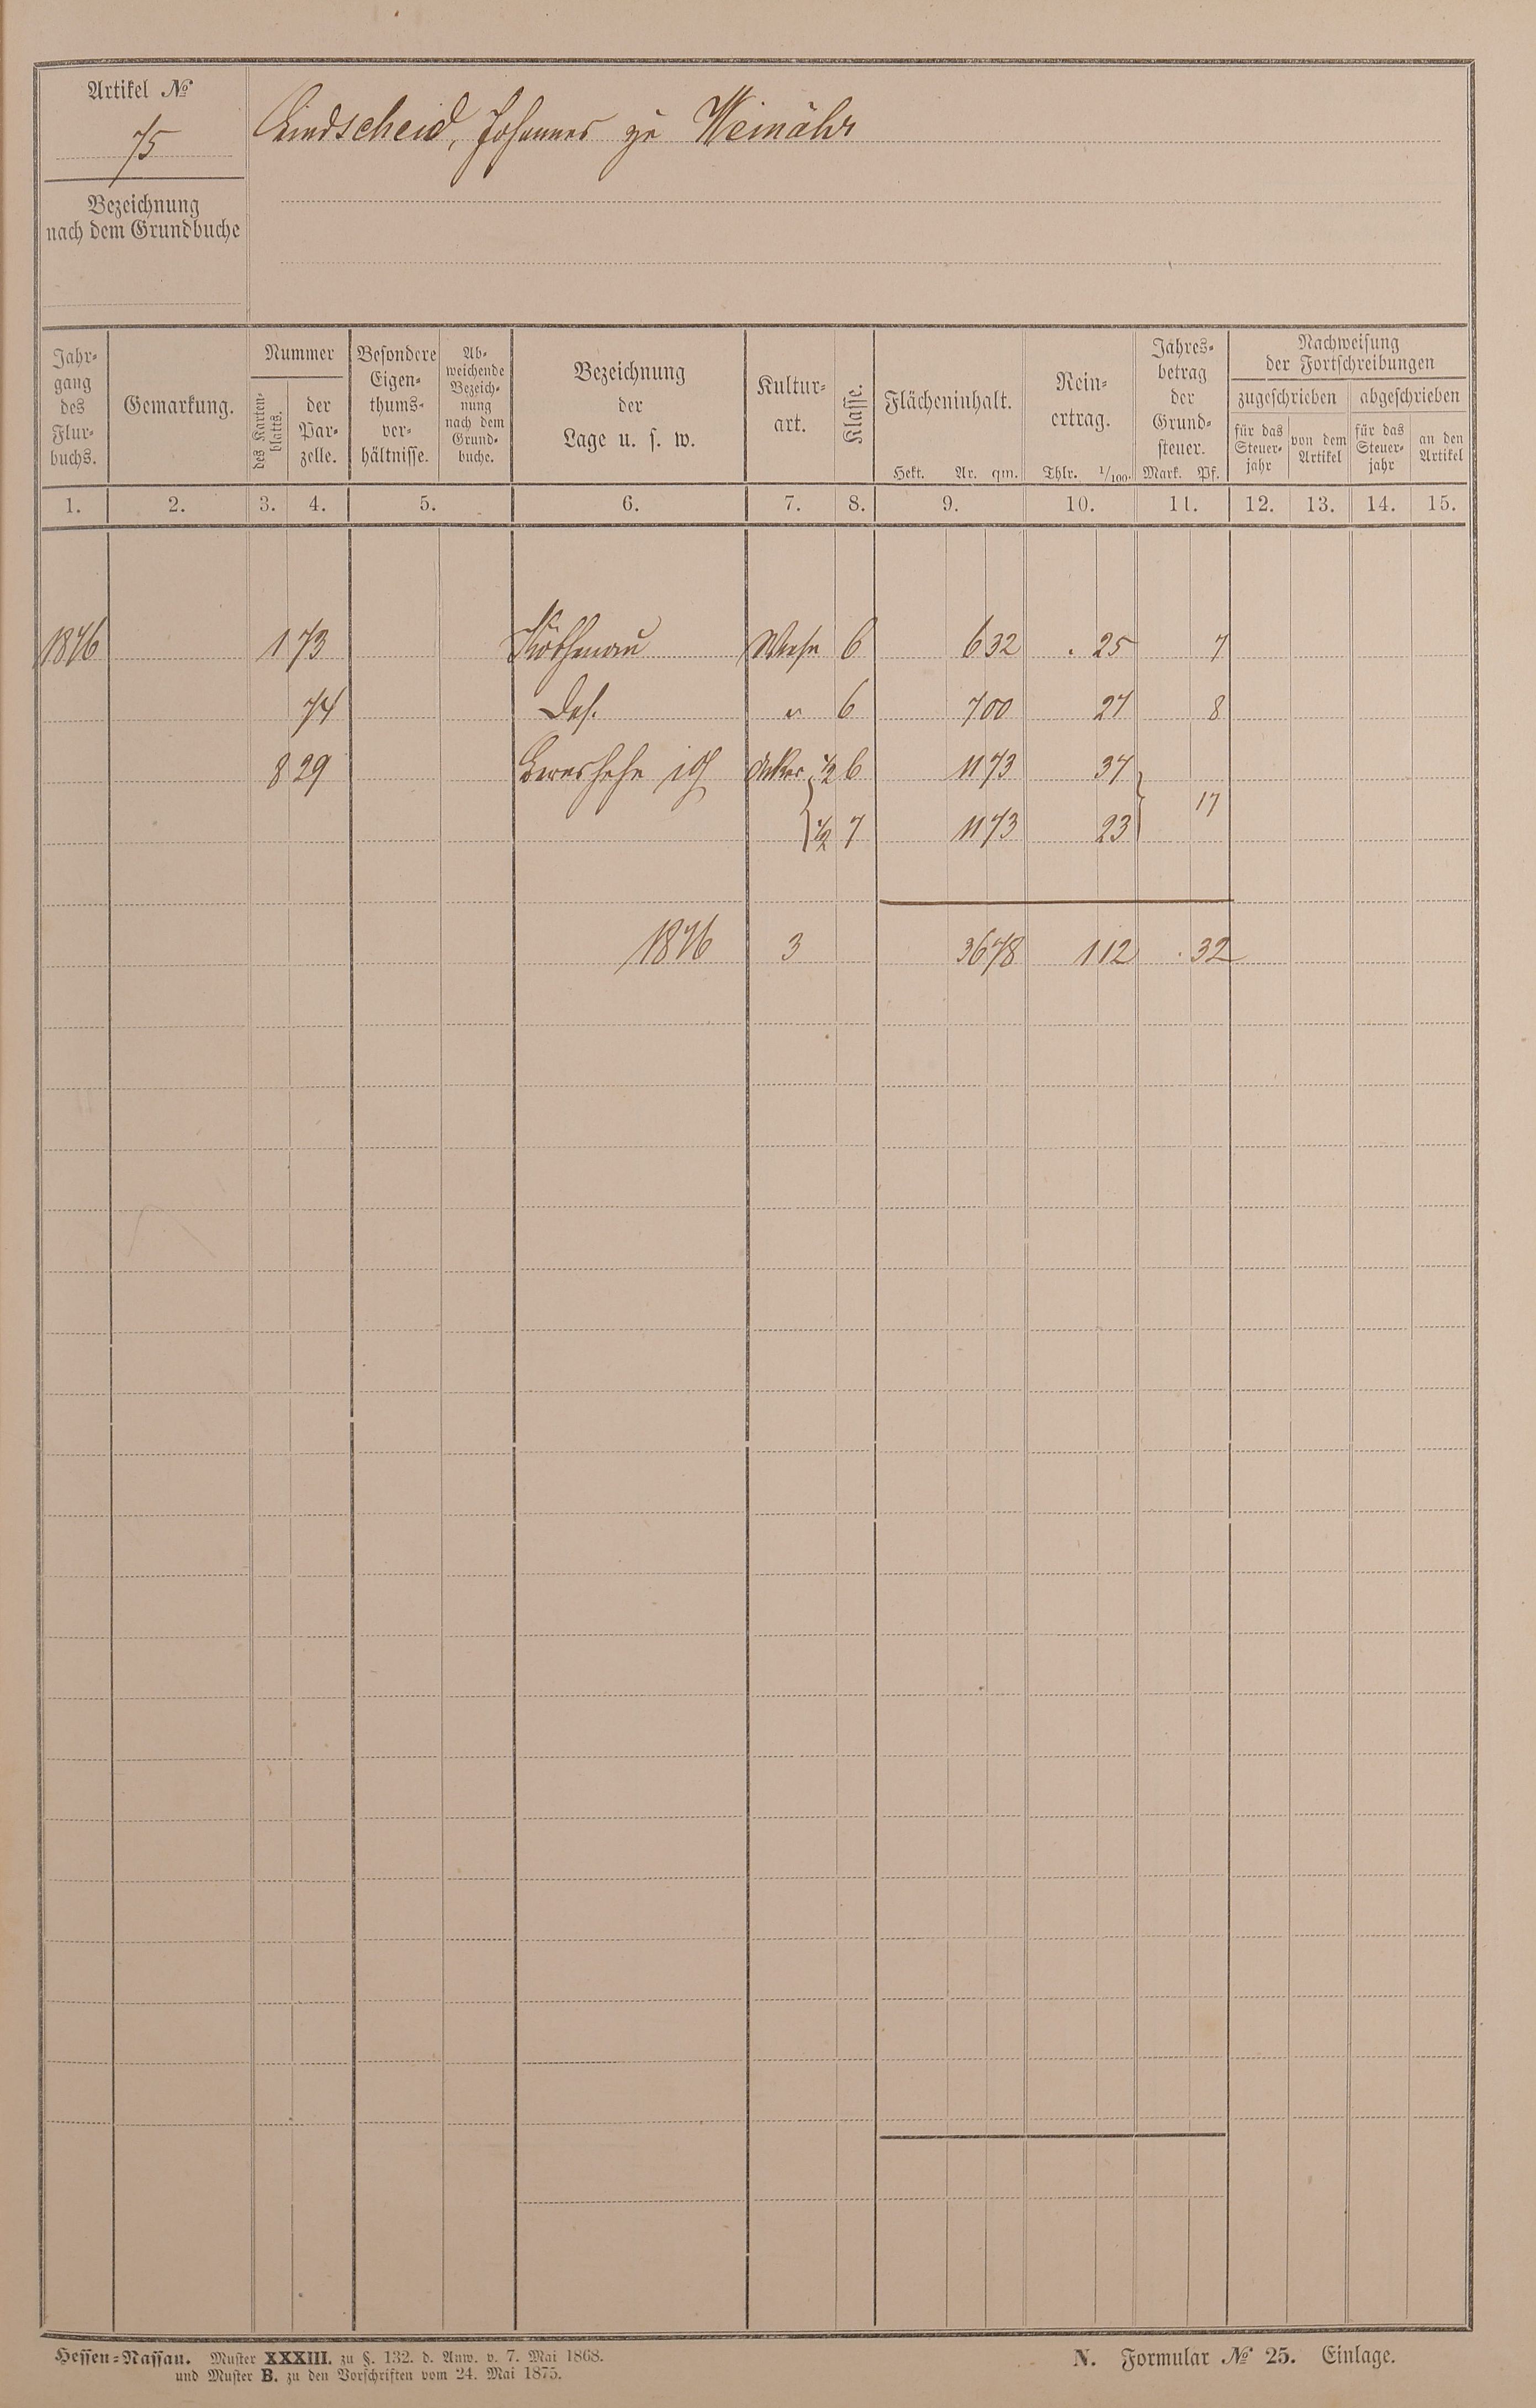 Artikel №
75
Lindscheid, Johannes zu Weinähr
Bezeichnung
nach dem Grundbuche
Jahr-
gang
des
Flur-
buchs.
Gemarkung.
Nummer
des Karten-
blatts.
der
Par-
zelle.
Besondere
Eigen-
thums-
ver-
hältnisse.
Ab-
weichende
Bezeich-
nung
nach dem
Grund-
buche.
Bezeichnung
der
Lage u. s. w.
Kultur-
art.
Klasse.
Flächeninhalt.
Hekt. Ar. qm.
Rein-
ertrag.
Thlr. 1/100.
Jahres-
betrag
der
Grund-
steuer.
Mark. Pf.
Nachweisung
der Fortschreibungen
zugeschrieben abgeschrieben
für das
Steuer-
jahr
von dem
Artikel
für das
Steuer-
jahr
an den
Artikel
1. 2. 3. 4. 5. 6. 7. 8. 9. 10. 11. 12. 13. 14. 15.
1876 1 73 Köthenau Wiese 6 6 32 . 25 7
74 Das. " 6 7 00 27 8
8 29 Acker 1/2 6 11 73 37
1/2 7 11 73 23 17
1876 3 36 78 1 12 . 32
Hessen-Nassau. Muster XXXIII. zu §. 132. d. Anw. v. 7. Mai 1868.
und Muster B. zu den Vorschriften vom 24. Mai 1875.
N. Formular № 25. Einlage.